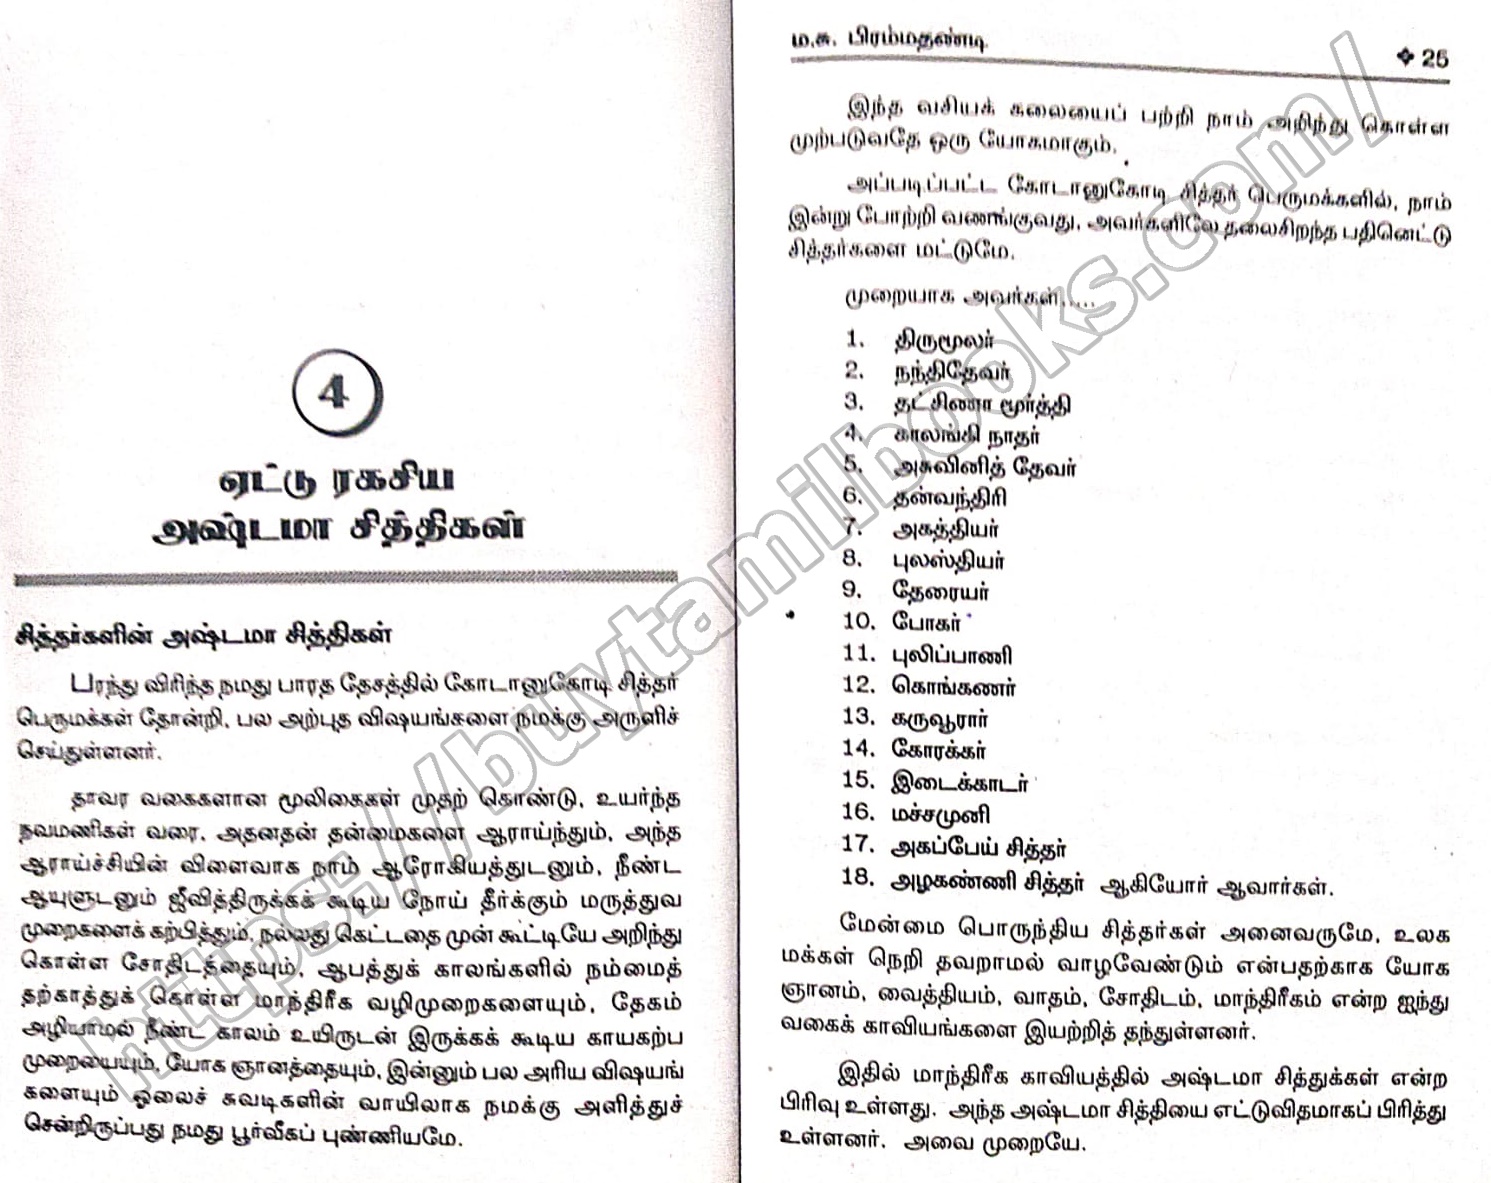 4
ஏட்டு ரகசிய
அஷ்டமா சித்திகள்
சித்தர்களின் அஷ்டமா சித்திகள்
பரந்து விரிந்த நமது பாரத தேசத்தில் கோடானுகோடி சித்தர்
பெருமக்கள் தோன்றி, பல அற்புத விஷயங்களை நமக்கு அருளிச்
செய்துள்ளனர்.
தாவர வகைகளான மூலிகைகள் முதற் கொண்டு, உயர்ந்த
நவமணிகள் வரை, அதனதன் தன்மைகளை ஆராய்ந்தும், அந்த
ஆராய்ச்சியின் விளைவாக நாம் ஆரோகியத்துடனும், நீண்ட
ஆயுளுடனும் ஜீவித்திருக்கக் கூடிய நோய் தீர்க்கும் மருத்துவ
முறைகளைக் கற்பித்தும், நல்லது கெட்டதை முன் கூட்டியே அறிந்து
கொள்ள சோதிடத்தையும், ஆபத்துக் காலங்களில் நம்மைத்
தற்காத்துக் கொள்ள மாந்திரீக வழிமுறைகளையும், தேகம்
அழியாமல் நீண்ட காலம் உயிருடன் இருக்கக் கூடிய காயகற்ப
முறையையும், யோக ஞானத்தையும், இன்னும் பல அரிய விஷயங்
களையும் ஓலைச் சுவடிகளின் வாயிலாக நமக்கு அளித்துச்
சென்றிருப்பது நமது பூர்வீகப் புண்ணியமே.
ம.சு. பிரம்மதண்டி ❖ 25
இந்த வசியக் கலையைப் பற்றி நாம் அறிந்து கொள்ள
முற்படுவதே ஒரு யோகமாகும்.
அப்படிப்பட்ட கோடானுகோடி சித்தர் பெருமக்களில், நாம்
இன்று போற்றி வணங்குவது, அவர்களிலே தலைசிறந்த பதினெட்டு
சித்தர்களை மட்டுமே.
முறையாக அவர்கள்.....
1. திருமூலர்
2. நந்திதேவர்
3. தட்சிணா மூர்த்தி
4. காலங்கி நாதர்
5. அசுவினித் தேவர்
6. தன்வந்திரி
7. அகத்தியர்
8. புலஸ்தியர்
9. தேரையர்
10. போகர்
11. புலிப்பாணி
12. கொங்கணர்
13. கருவூரார்
14. கோரக்கர்
15. இடைக்காடர்
16. மச்சமுனி
17. அகப்பேய் சித்தர்
18. அழகண்ணி சித்தர் ஆகியோர் ஆவார்கள்.
மேன்மை பொருந்திய சித்தர்கள் அனைவருமே, உலக
மக்கள் நெறி தவறாமல் வாழவேண்டும் என்பதற்காக யோக
ஞானம், வைத்தியம், வாதம், சோதிடம், மாந்திரீகம் என்ற ஐந்து
வகைக் காவியங்களை இயற்றித் தந்துள்ளனர்.
இதில் மாந்திரீக காவியத்தில் அஷ்டமா சித்துக்கள் என்ற
பிரிவு உள்ளது. அந்த அஷ்டமா சித்தியை எட்டுவிதமாகப் பிரித்து
உள்ளனர். அவை முறையே.
https://buytamilbooks.com/